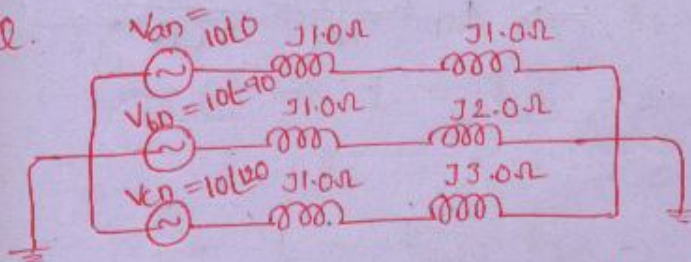 Q.
Van = 10∠0 J1.0Ω J1.0Ω
Vbn = 10∠-90 J1.0Ω J2.0Ω
Vcn = 10∠120 J1.0Ω J3.0Ω